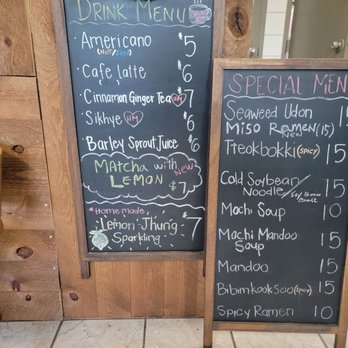 DRINK MENU
Americano $5
(HOT/ICED)
Cafe latte $6
Cinnamon Ginger Tea HM $7
Sikhye HM $6
Barley Sprout Juice $6
MAtcha with NEW
LEMON $7
*Home made
Lemon Jhung $7
Sparkling
SPECIAL MEN
Seaweed Udon 1
Miso Ramen (15)
NEW
Tteokbokki (SPICY) 15
Cold Soybean 15
Noodle
Mochi Soup 10
Mochi Mandoo 15
Soup
Mandoo 10
Bibimkooksoo (SPICY) 15
Spicy Ramen 10